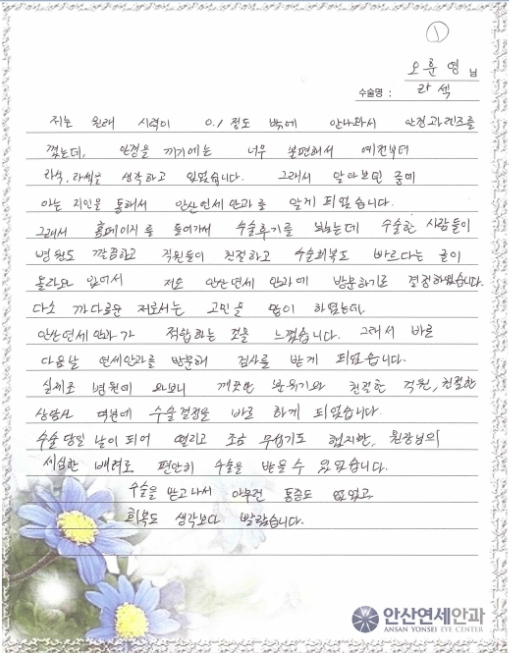 ①
오훈영 님
수술명 : 라섹
저는 원래 시력이 0.1 정도 밖에 안나와서 안경과 렌즈를
꼈는데, 안경을 끼기에는 너무 불편해서 예전부터
라식, 라섹을 생각하고 있었습니다. 그래서 알아보던 중에
아는 지인을 통해서 안산연세안과를 알게 되었습니다.
그래서 홈페이지를 들어가서 수술후기를 봤는데 수술한 사람들이
병원도 깔끔하고 직원들이 친절하고 수술회복도 빠르다는 글이
올라와 있어서 저도 안산연세안과에 방문하기로 결정하였습니다.
다소 까다로운 저로서는 고민을 많이 하였는데,
안산연세안과가 적합하는 것을 느꼈습니다. 그래서 바로
다음날 연세안과를 방문해 검사를 받게 되었습니다.
실제로 병원에 와보니 깨끗한 분위기와 친절한 직원, 친절한
상담사 덕분에 수술결정을 바로 하게 되었습니다.
수술 당일 날이 되어 떨리고 조금 무섭기도 했지만, 원장님의
세심한 배려로 편안히 수술을 받을 수 있었습니다.
수술을 받고 나서 아무런 통증도 없었고
회복도 생각보다 빨랐습니다.
안산연세안과
ANSAN YONSEI EYE CENTER